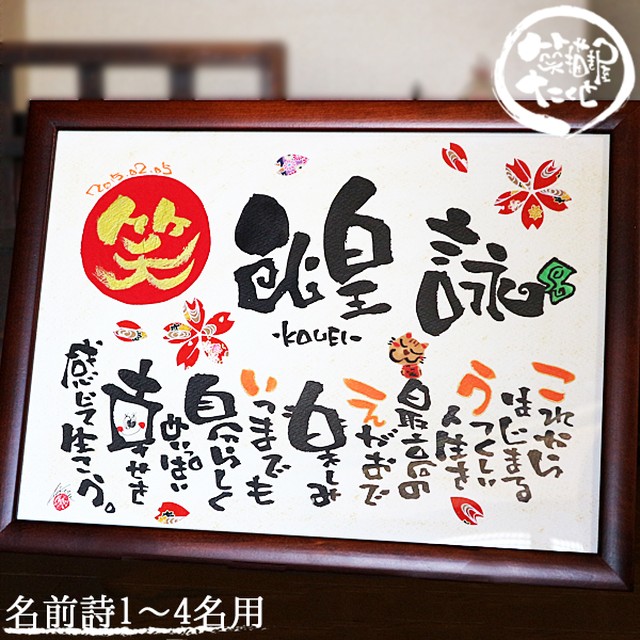 2015.02.05
笑
煌詠
-KOUEI-
これから
はじまる
うつくしい
人生を
最高の
えがおで
楽しみ
いつまでも
自分らしく
めいっぱい
幸せを
感じて生きよう。
名前詩1〜4名用